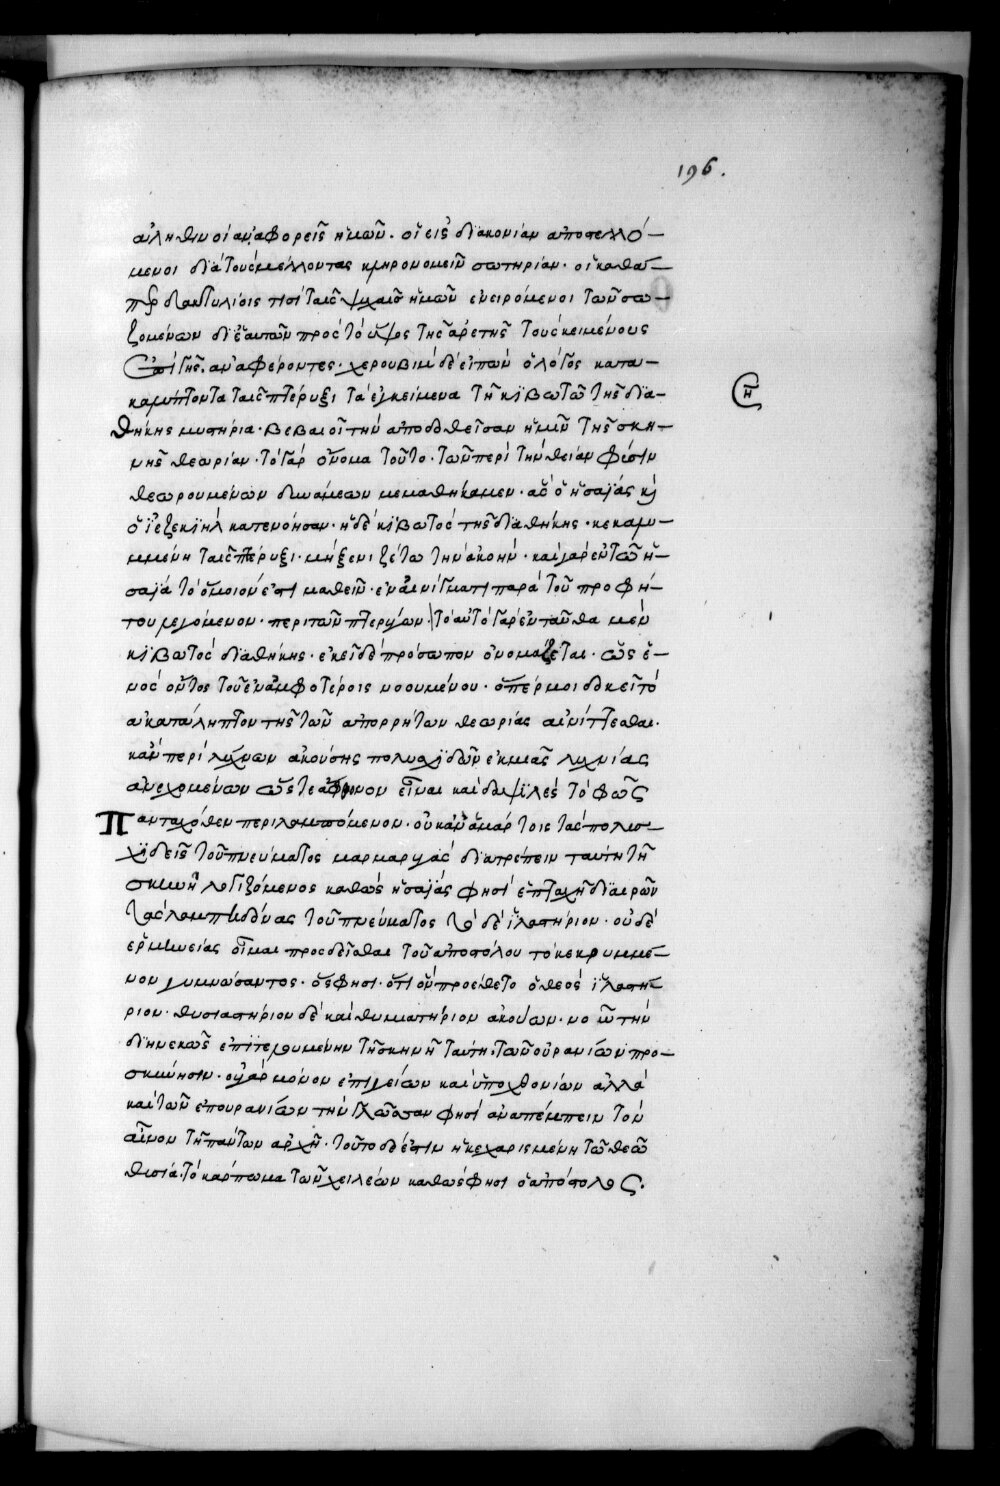 196.
ἀληθινοὶ ἀναφορεῖς ἡμῶν· οἵ εἰς διακονίαν ἀποστελλό-
μενοι διὰ τοὺς μέλλοντας κληρονομεῖν σωτηρίαν· οἱ καθά-
περ δακτυλίοις τισὶ ταῖς ψυχαῖς ἡμῶν ἐνειρόμενοι τῶν σω-
ζομένων δι' ἑαυτῶν πρὸς τὸ ὕψος τῆς ἀρετῆς τοὺς κειμένους
ἐπὶ γῆς ἀναφέροντες· χερουβὶμ δὲ εἰπὼν ὁ λόγος κατα-
καμύπτοντα ταῖς πτέρυξι τὰ ἐγκείμενα τῇ κιβωτῷ τῆς δια-
θήκης μυστήρια· βεβαιοῖ τὴν ἀποδοθεῖσαν ἡμῖν τῆς σκη-
νῆς θεωρίαν· τὸ γὰρ ὄνομα τοῦτο· τῶν περὶ τὴν θείαν φύσιν
θεωρουμένων δυνάμεων μεμαθήκαμεν· ἃς ὁ ἡσαΐας κὶ
ὁ ἰεζεκιὴλ κατενόησαν· ἡ δὲ κιβωτὸς τῆς διαθήκης· κεκαλυ-
μμένη ταῖς πτέρυξι· μὴ ξενιζέτω τὴν ἀκοήν· καὶ γὰρ ἐν τῷ ἡ-
σαΐα τὸ ὅμοιον ἐστὶ μαθεῖν· ἐν αἰνίγματι παρὰ τοῦ προφή-
του λεγόμενον· περὶ τῶν πτερύγων· τὸ αὐτὸ γὰρ ἐνταῦθα μὲν
κιβωτὸς διαθήκης· ἐκεῖ δὲ πρόσωπον ὀνομάζεται· ὡς ἑ-
νὸς ὄντος τοῦ ἐν ἀμφοτέροις νοουμένου· ὅπερ μοι δοκεῖ τὸ
ἀκατάληπτον τῆς τῶν ἀπορρήτων θεωρίας αἰνίττεσθαι.
κἂν περὶ λύχνων ἀκούσης πολυσχιδῶν ἐκ μιᾶς λυχνίας
ἀνεχομένων ὥστε ἄφθονον εἶναι καὶ δαψιλὲς τὸ φῶς
πανταχόθεν περιλαμπόμενον· οὐκ ἂν ἁμάρτοις τὰς πολυσ-
χιδεῖς τοῦ πνεύματος μαρμαρυγὰς διατρέπειν ταύτη τῆ
σκηνῆ λογιζόμενος καθὼς ἡσαΐας φησὶ ἑπταχῆ διαιρῶν
τὰς λαμπηδόνας τοῦ πνεύματος τὸ δὲ ἱλαστήριον· οὐδὲ
ἑρμηνείας οἶμαι προσδεῖσθαι τοῦ ἀποστόλου τὸ κεκρυμμέ-
νον γυμνώσαντος· ὅς φησι· ὅτι ὃν προέθετο ὁ θεὸς ἱλαστή-
ριον· θυσιαστήριον δὲ καὶ θυμιατήριον ἀκούων· νοῶ τὴν
διηνεκῶς ἐπιτελουμένην τῆ σκηνῆ ταύτη· τῶν οὐρανίων προ-
σκύνησιν· οὐ γὰρ μόνον ἐπιγείων καὶ ὑποχθονίων ἀλλὰ
καὶ τῶν ἐπουρανίων τὴν γλῶσσαν φησὶ ἀναπέμπειν τὸν
αἶνον τῆ πάντων ἀρχῆ· τοῦτο δέ ἐστιν ἡ κεχαρισμένη τῶ θεῶ
θυσία· τὸ κάρπωμα τῶν χειλέων καθώς φησι ὁ ἀπόστολος.